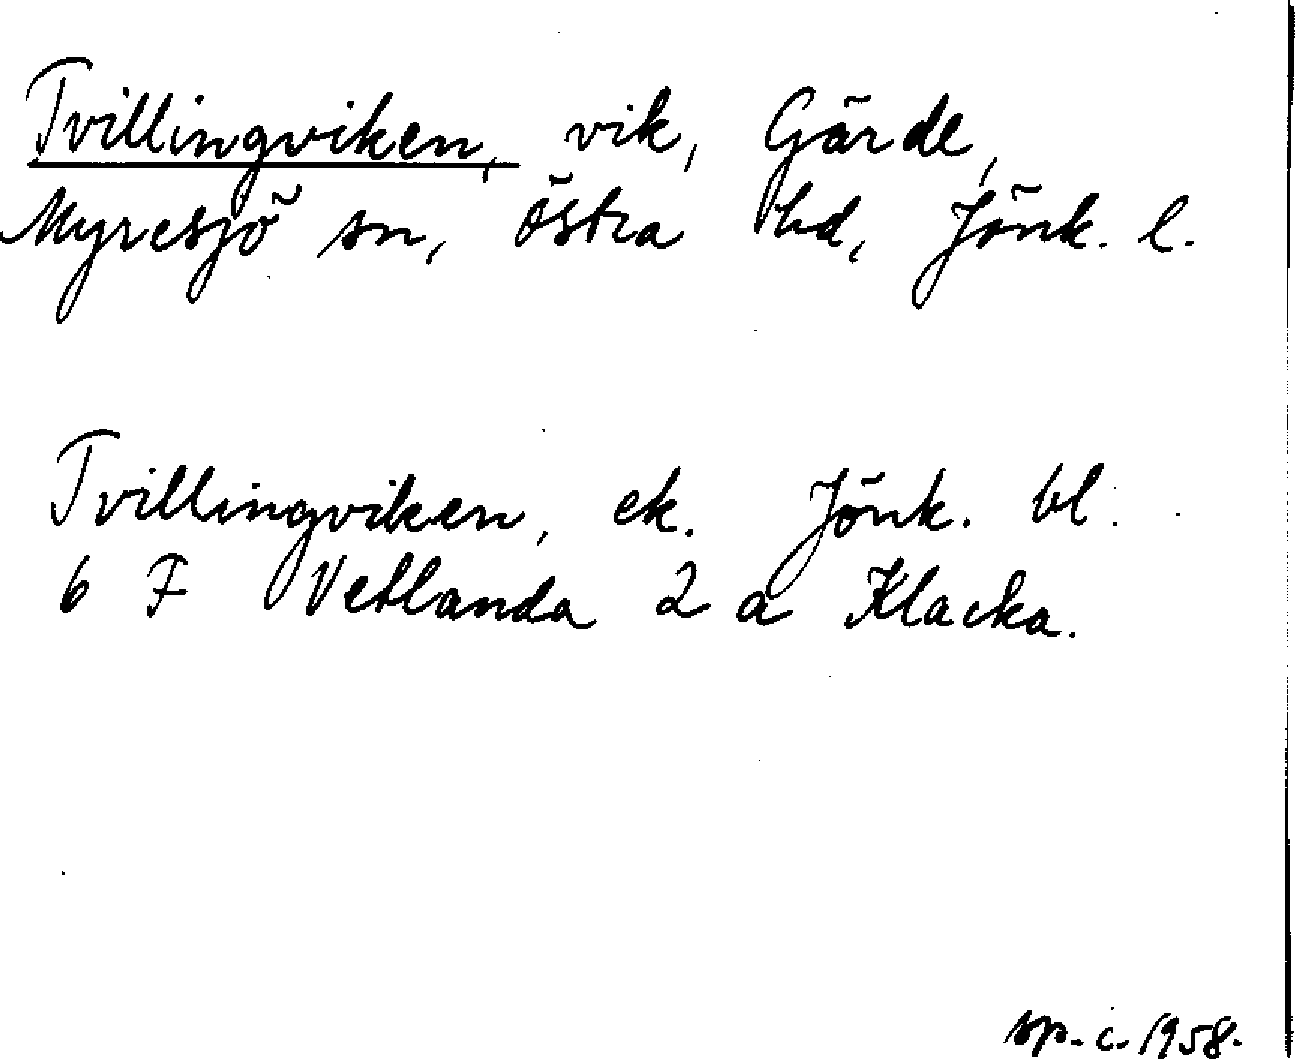 Tvillingviken, vik, Gärde,
Myresjö sn, Östra hd, Jönk. l.
Tvillingviken, ek. Jönk. bl.
6 F Vetlanda 2 a Klacka.
sp. c. 1958.